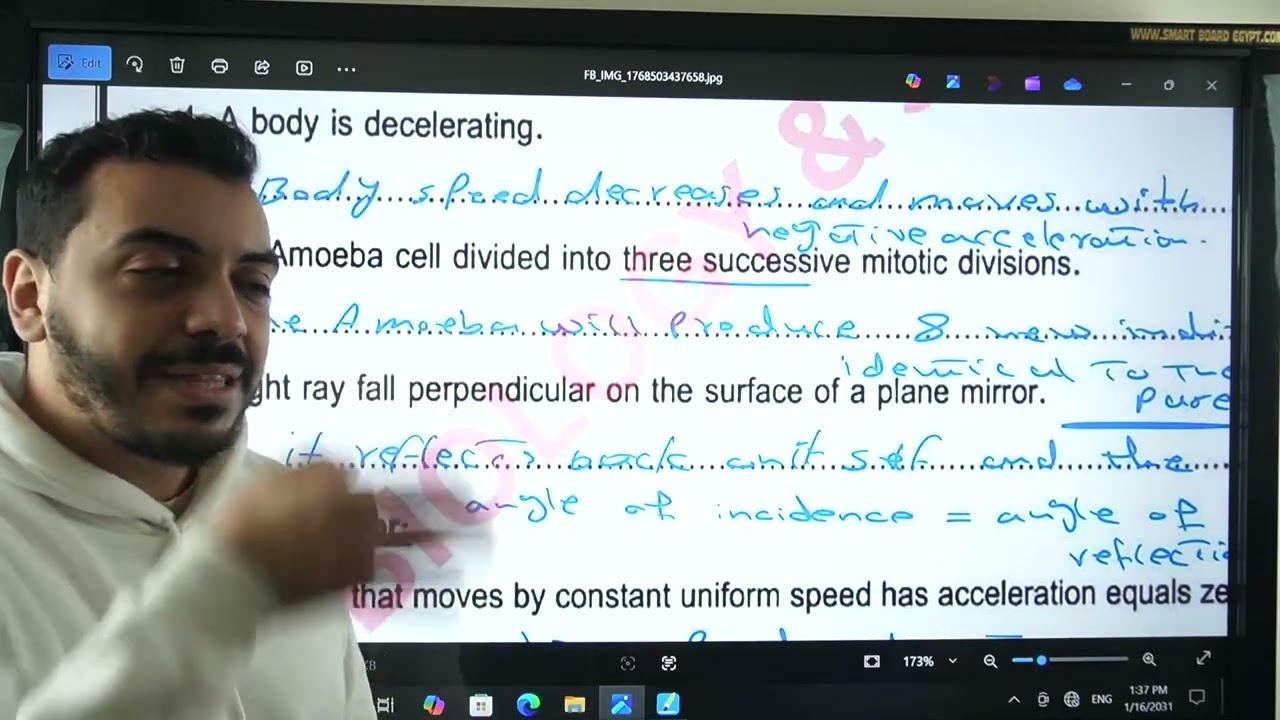 WWW.SMART BOARD EGYPT.COM
Edit
FB_IMG_1768503437658.jpg
A body is decelerating.
Body speed decreases and moves with
negative acceleration.
Amoeba cell divided into three successive mitotic divisions.
Amoeba will produce 8 new
identical to the
ght ray fall perpendicular on the surface of a plane mirror.
it reflects back on it self and the
angle of incidence = angle of
reflectio
that moves by constant uniform speed has acceleration equals ze
BIOLOGY &
173%
ENG
1:37 PM
1/16/2031